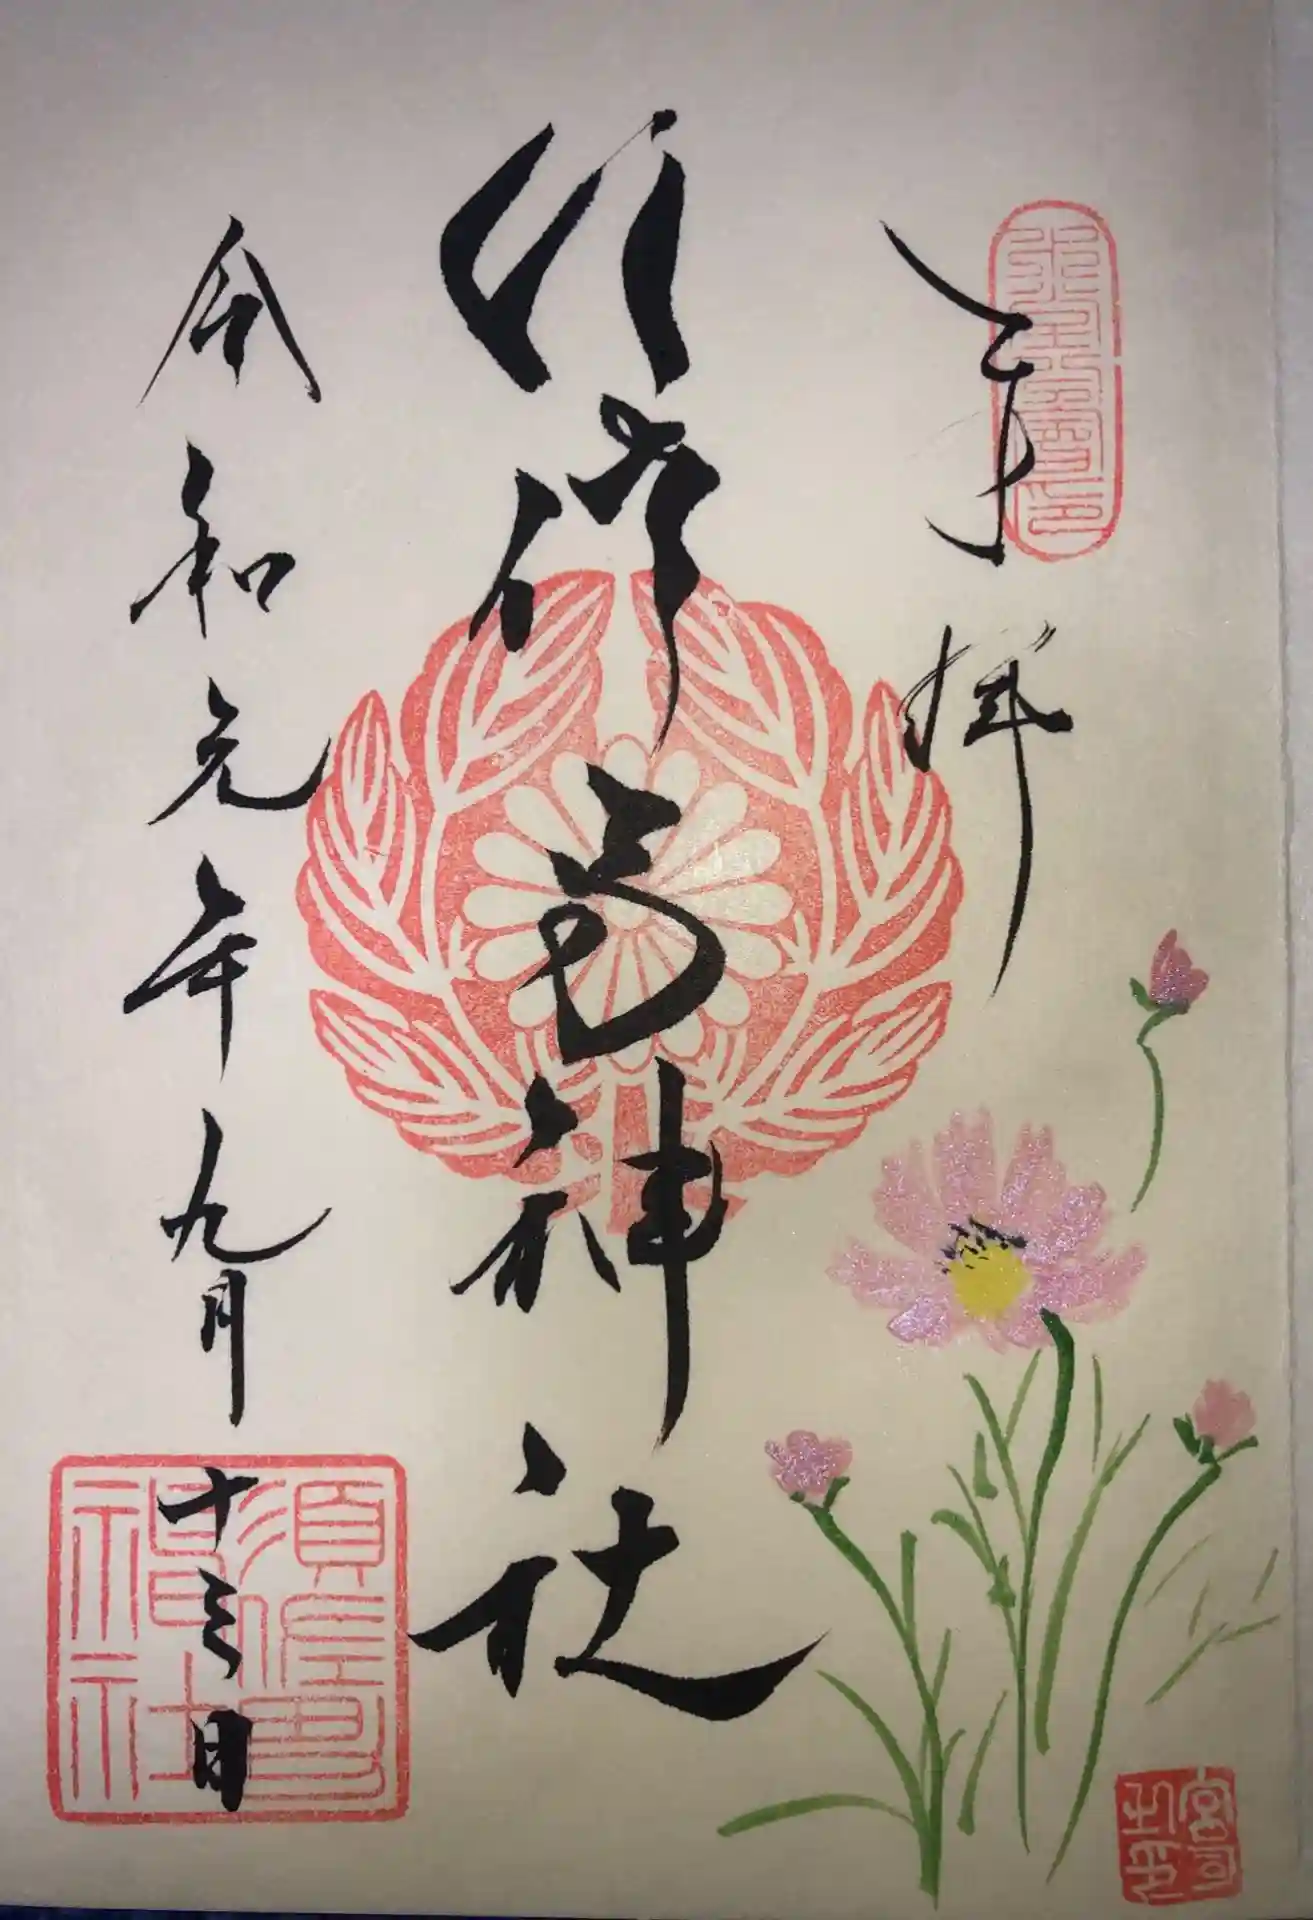 奉拝
須佐男神社
令和元年九月十三日
須佐男
神社
宮司
之印